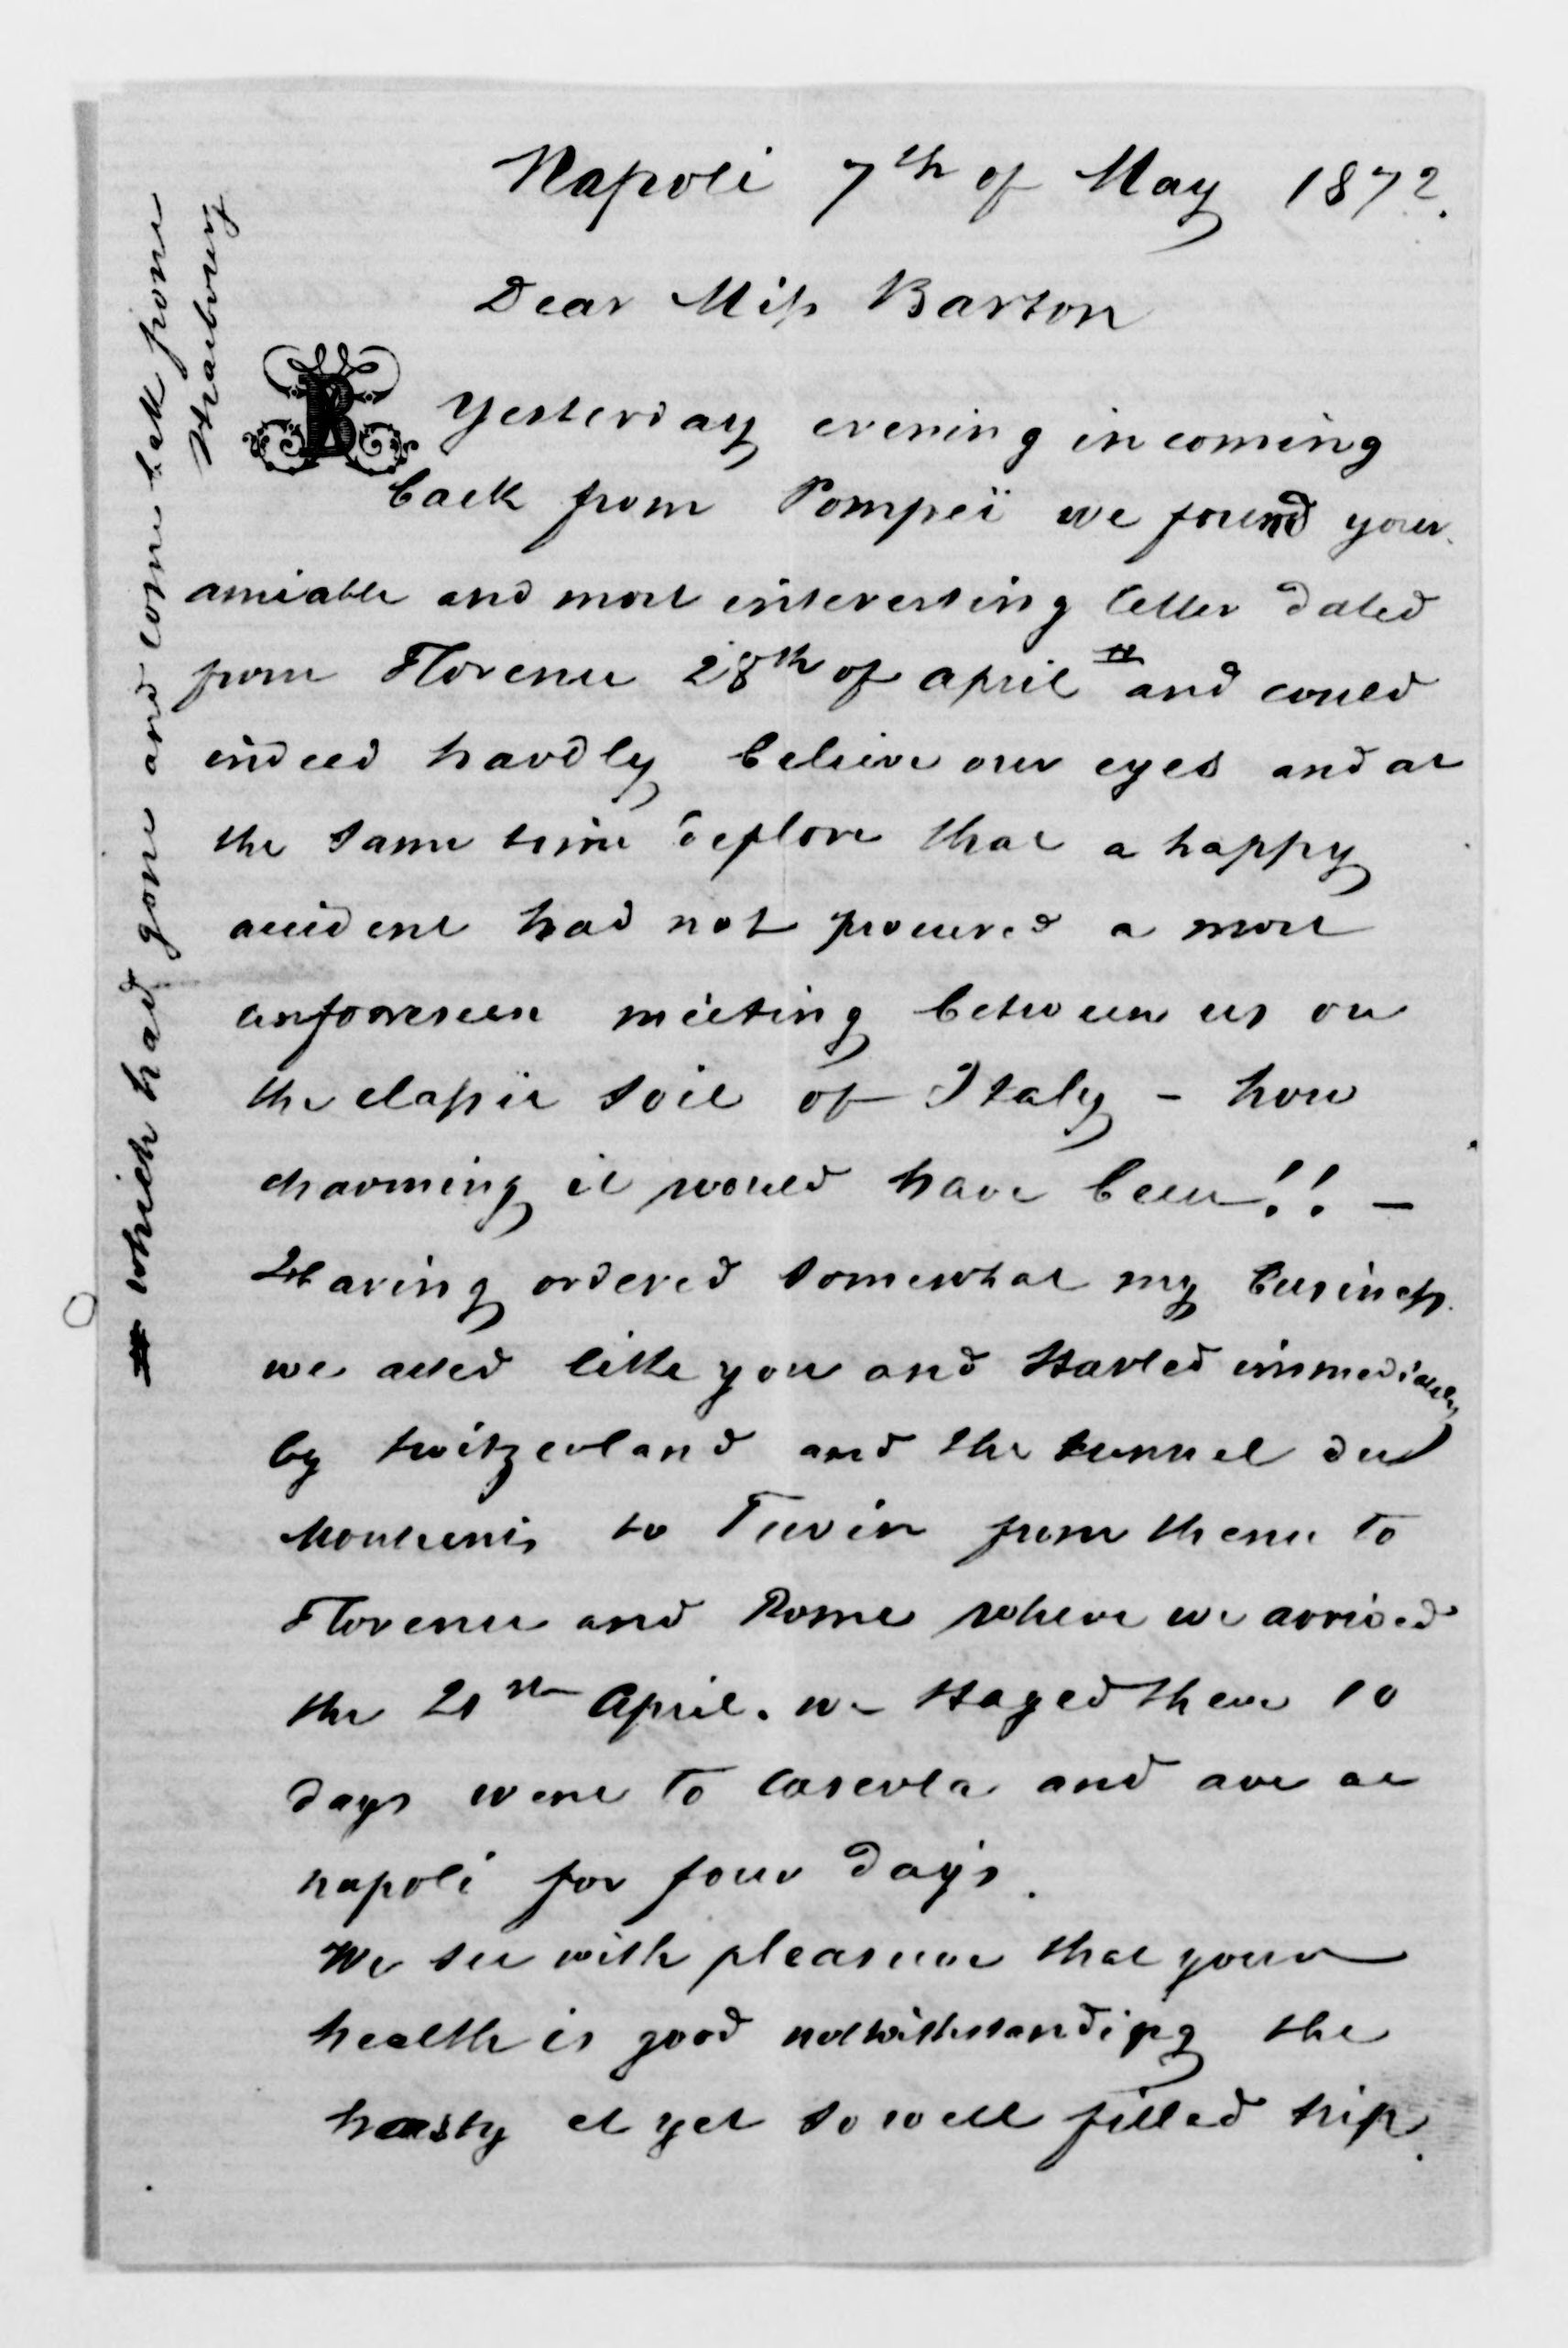 Napoli 7th of May 1872.
Dear Miss Barton
B
Yesterday evening in coming
back from Pompeï we found your
amiable and most interesting letter dated
from Florence 28th of April # and could
indeed hardly believe our eyes and at
the same time deplore that a happy
accident had not procured a most
unforeseen meeting between us on
the classic soil of Italy - how
charming it would have been!! -
Having ordered somewhat my business
we acted like you and started immediately
by Switzerland and the tunnel du
Montcenis to Turin from thence to
Florence and Rome where we arrived
the 21st April. we stayed there 10
days went to Caserta and are at
napoli for four days.
We see with pleasure that your
health is good notwithstanding the
hasty et yet so well filled trip.
# which had gone and come back from
Strasbourg